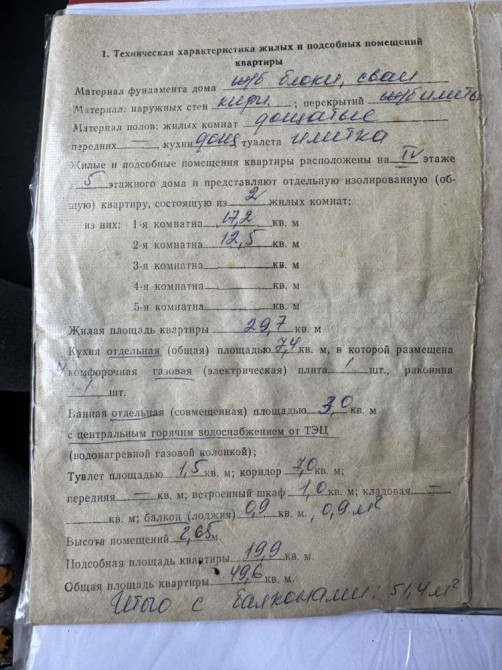 1. Техническая характеристика жилых и подсобных помещений
квартиры
Материал фундамента дома ж/б блоки, сваи
Материал: наружных стен кирп. ; перекрытий ж/б плиты
Материал полов: жилых комнат дощатые
передних — , кухни дощ, туалета плитка
Жилые и подсобные помещения квартиры расположены на IV этаже
5 этажного дома и представляют отдельную изолированную (об-
щую) квартиру, состоящую из 2 жилых комнат:
из них: 1-я комната 17,2 кв. м
2-я комната 12,5 кв. м
3-я комната кв. м
4-я комната кв. м
5-я комната кв. м
Жилая площадь квартиры 29,7 кв. м
Кухня отдельная (общая) площадью 7,4 кв. м, в которой размещена
4 комфорочная газовая (электрическая) плита 1 шт., раковина
1 шт.
Ванная отдельная (совмещенная) площадью 3,0 кв. м
с центральным горячим водоснабжением от ТЭЦ
(водонагревной газовой колонкой);
Туалет площадью 1,5 кв. м; коридор 7,0 кв. м;
передняя — кв. м; встроенный шкаф 1,0 кв. м; кладовая —
кв. м; балкон (лоджия) 0,9 кв. м, 0,9 м²
Высота помещений 2,65 м.
Подсобная площадь квартиры 19,9 кв. м.
Общая площадь квартиры 49,6 кв. м.
Итого с балконами: 51,4 м²